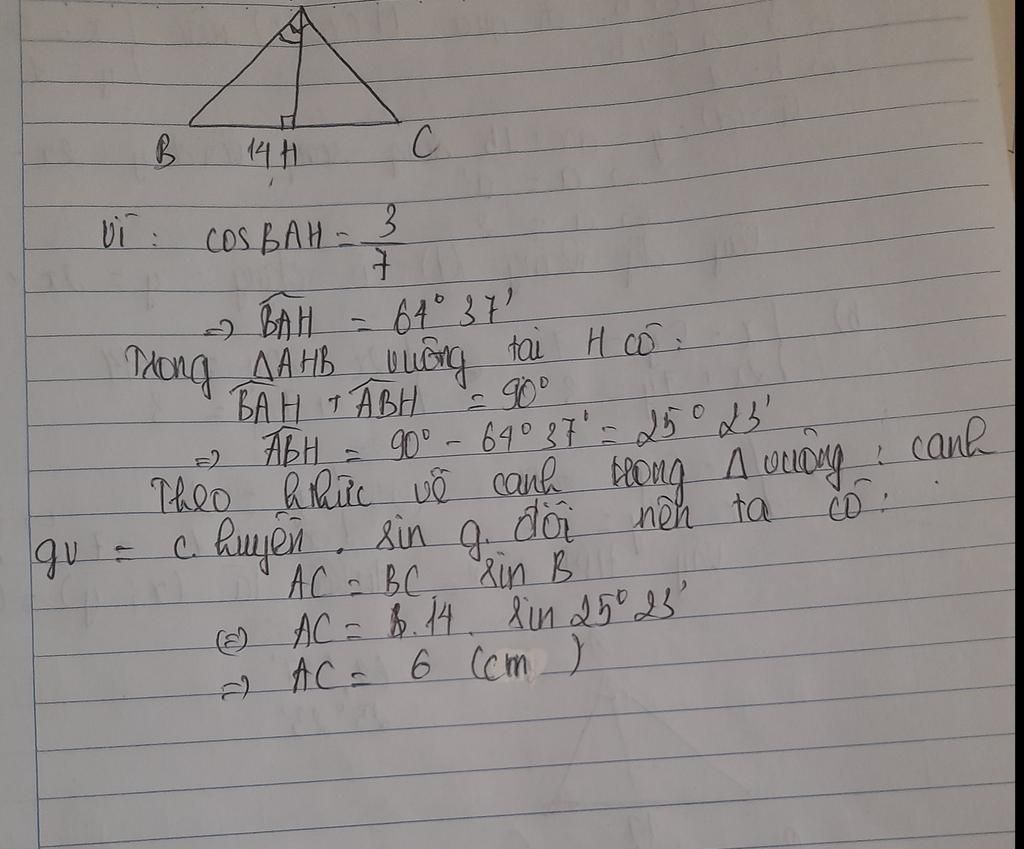 B 14 H C
Vì : cos BAH = 3/7
=> BAH = 64° 37'
Trong ΔAHB vuông tại H có :
BAH + ABH = 90°
=> ABH = 90° - 64° 37' = 25° 23'
Theo h thức về cạnh trong Δ vuông : cạnh
gv = c. huyền . sin g. đối nên ta có :
AC = BC . sin B
(=) AC = 14 . sin 25° 23'
=> AC = 6 (cm)